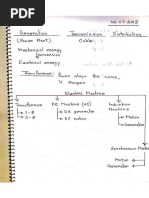 02-07-2019
Generation Transmission Distribution
(Power Plant) Cable
Mechanical energy
conversion
Electrical energy
Transformer: Power stays the same,
V changes.
Electric Machine
Transformer
DC Machine (AC)
Induction
Machine
1-Φ
3-Φ
DC generator
DC motor
Motor
Generator
Synchronous Machine
Motor
Generator